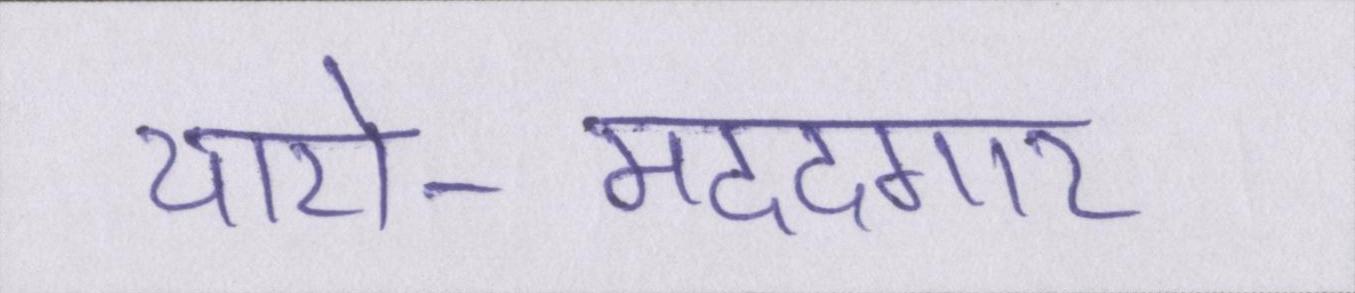 यारो-मददगार